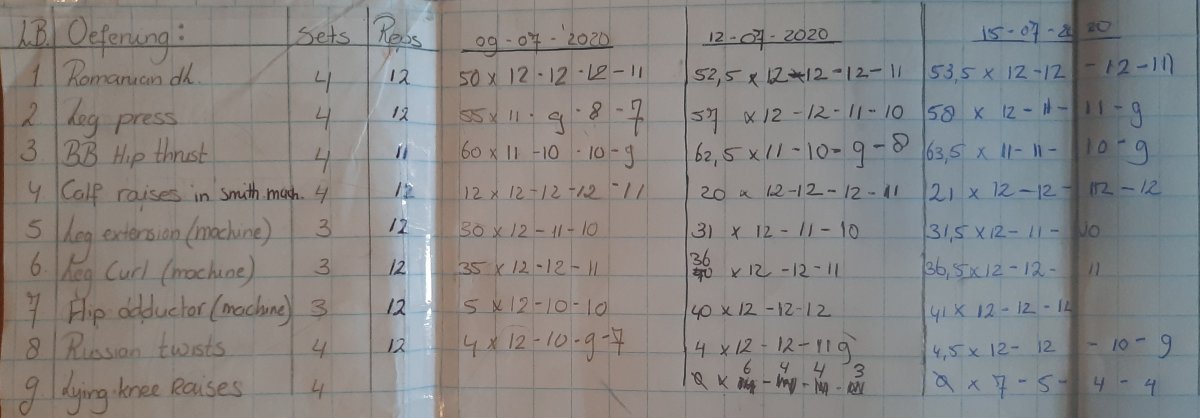 LB. Oefening: Sets Reps 09-07-2020 12-07-2020 15-07-2020
1 Romanian dl. 4 12 50 x 12-12-12-11 52,5 x 12-12-12-11 53,5 x 12-12-12-11
2 Leg press 4 12 55 x 11-9-8-7 57 x 12-12-11-10 58 x 12-11-11-9
3. BB Hip thrust 4 11 60 x 11-10-10-9 62,5 x 11-10-9-8 63,5 x 11-11-10-9
4 Calf raises in smith mach. 4 12 12 x 12-12-12-11 20 x 12-12-12-11 21 x 12-12-12-12
5 Leg extension (machine) 3 12 30 x 12-11-10 31 x 12-11-10 31,5 x 12-11-10
6. Leg Curl (machine) 3 12 35 x 12-12-11 36 x 12-12-11 36,5 x 12-12-11
7 Hip adductor (machine) 3 12 5 x 12-10-10 40 x 12-12-12 41 x 12-12-12
8 Russian twists 4 12 4 x 12-10-9-7 4 x 12-12-11 9 4,5 x 12-12-10-9
9 Lying knee Raises 4 0 x 6-4-4-3 0 x 7-5-4-4